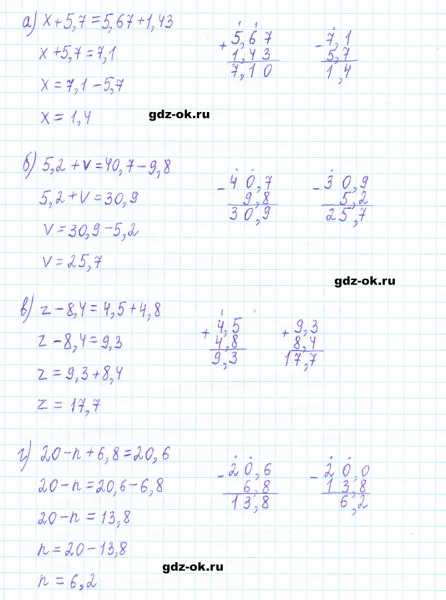 а) x + 5,7 = 5,67 + 1,43
x + 5,7 = 7,1
x = 7,1 − 5,7
x = 1,4
+ 5,67
1,43
7,10
− 7,1
5,7
1,4
gdz-ok.ru
б) 5,2 + v = 40,7 − 9,8
5,2 + v = 30,9
v = 30,9 − 5,2
v = 25,7
− 40,7
9,8
30,9
− 30,9
5,2
25,7
gdz-ok.ru
в) z − 8,4 = 4,5 + 4,8
z − 8,4 = 9,3
z = 9,3 + 8,4
z = 17,7
1
+ 4,5
4,8
9,3
+ 9,3
8,4
17,7
г) 20 − n + 6,8 = 20,6
20 − n = 20,6 − 6,8
20 − n = 13,8
n = 20 − 13,8
n = 6,2
− 20,6
6,8
13,8
− 20,0
13,8
6,2
gdz-ok.ru